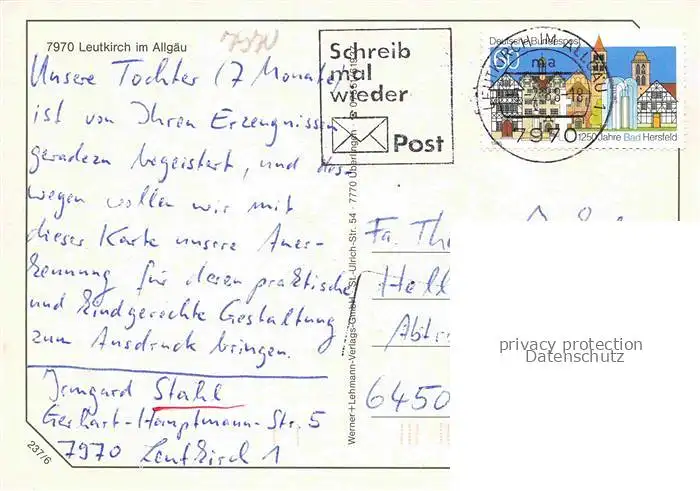 7970 Leutkirch im Allgäu
7970
Unsere Tochter (7 Monate)
ist von Ihren Erzeugnissen
geradezu begeistert, und des-
wegen wollen wir mit
dieser Karte unsere Aner-
kennung für deren praktische
und kindgerechte Gestaltung
zum Ausdruck bringen.
Irmgard Stahl
Gerhart-Hauptmann-Str. 5
7970 Leutkirch 1
237/6
Schreib
mal
wieder
Post
Werner+Lehmann-Verlags-GmbH, St.-Ulrich-Str. 54 · 7770 Überlingen
Deutsche Bundespost
60
1250 Jahre Bad Hersfeld
LEUTKIRCH IM ALLGÄU 1
ma
7970
Fa. Th
Hell
Abt
6450
privacy protection
Datenschutz